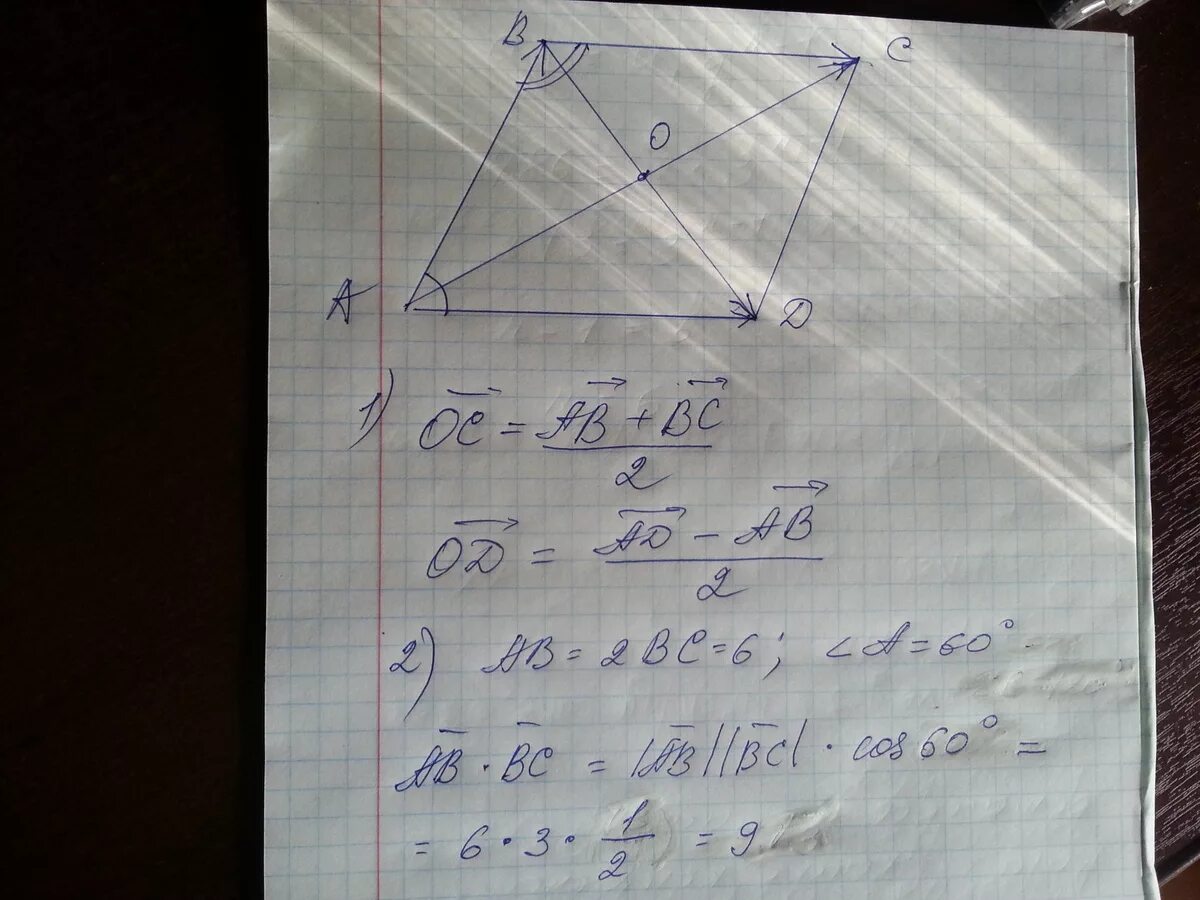 B
C
O
A
D
1) OC⃗ = (AB⃗ + BC⃗)/2
OD⃗ = (AD⃗ − AB⃗)/2
2) AB = 2BC = 6; ∠A = 60°
AB⃗ · BC⃗ = |AB⃗||BC⃗| · cos 60° =
= 6 · 3 · 1/2 = 9